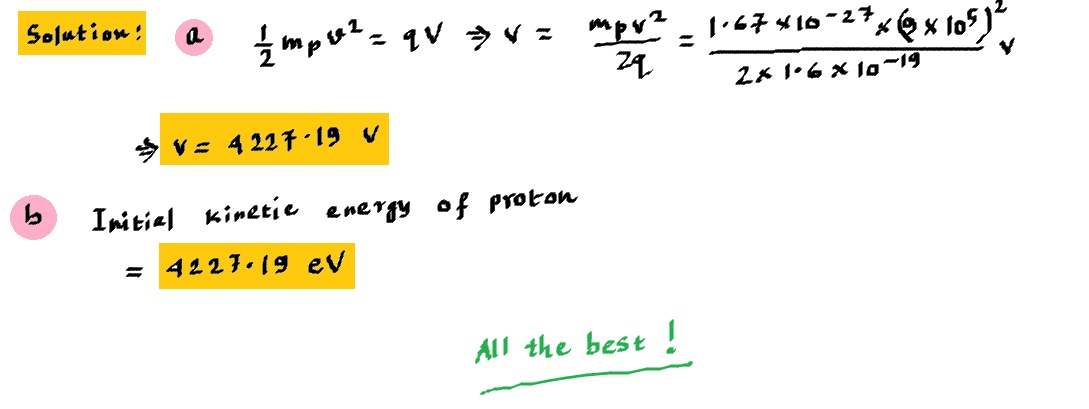 Solution: a ½ mₚv² = qV ⇒ V = mₚv²/2q = 1.67 × 10⁻²⁷ × (9 × 10⁵)²/2 × 1.6 × 10⁻¹⁹ V
⇒ V = 4227.19 V
b Initial kinetic energy of proton
= 4227.19 eV
All the best !